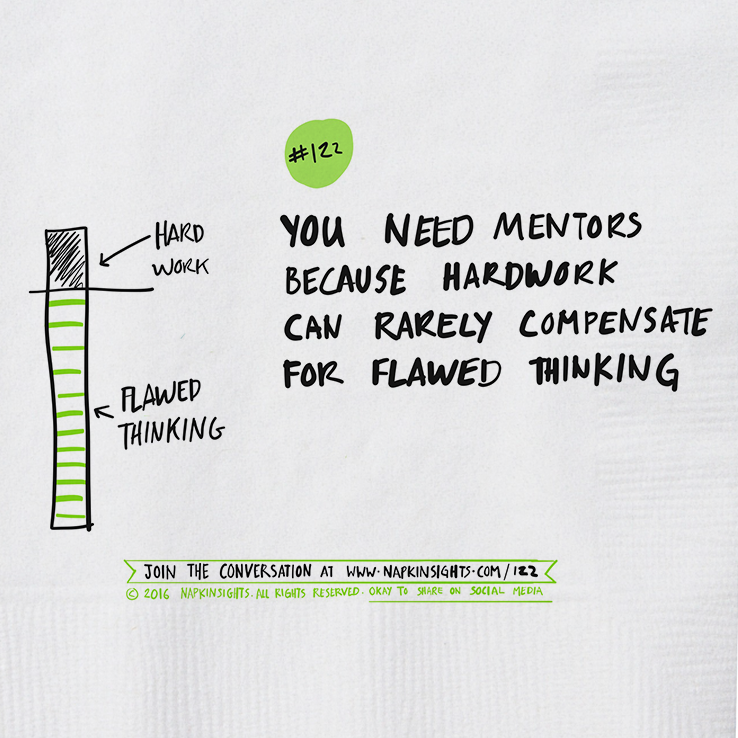 #122
YOU NEED MENTORS
BECAUSE HARDWORK
CAN RARELY COMPENSATE
FOR FLAWED THINKING
HARD
WORK
FLAWED
THINKING
JOIN THE CONVERSATION AT WWW.NAPKINSIGHTS.COM/122
© 2016 NAPKINSIGHTS. ALL RIGHTS RESERVED. OKAY TO SHARE ON SOCIAL MEDIA